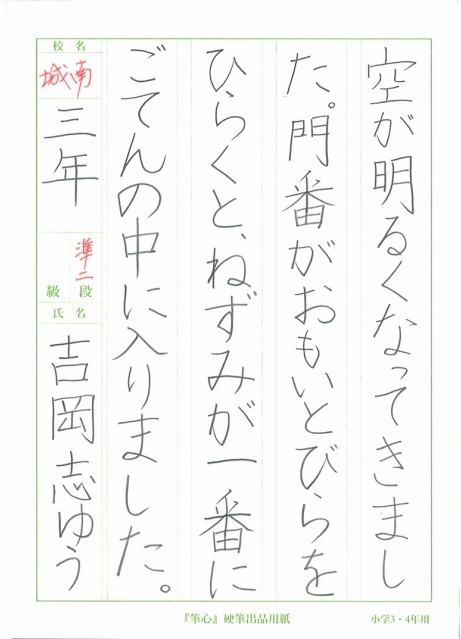 空が明るくなってきまし
た。門番がおもいとびらを
ひらくと、ねずみが一番に
ごてんの中に入りました。
校名
城南
三年
準二
段級
氏名
吉岡志ゆう
『筆心』硬筆出品用紙
小学3・4年用